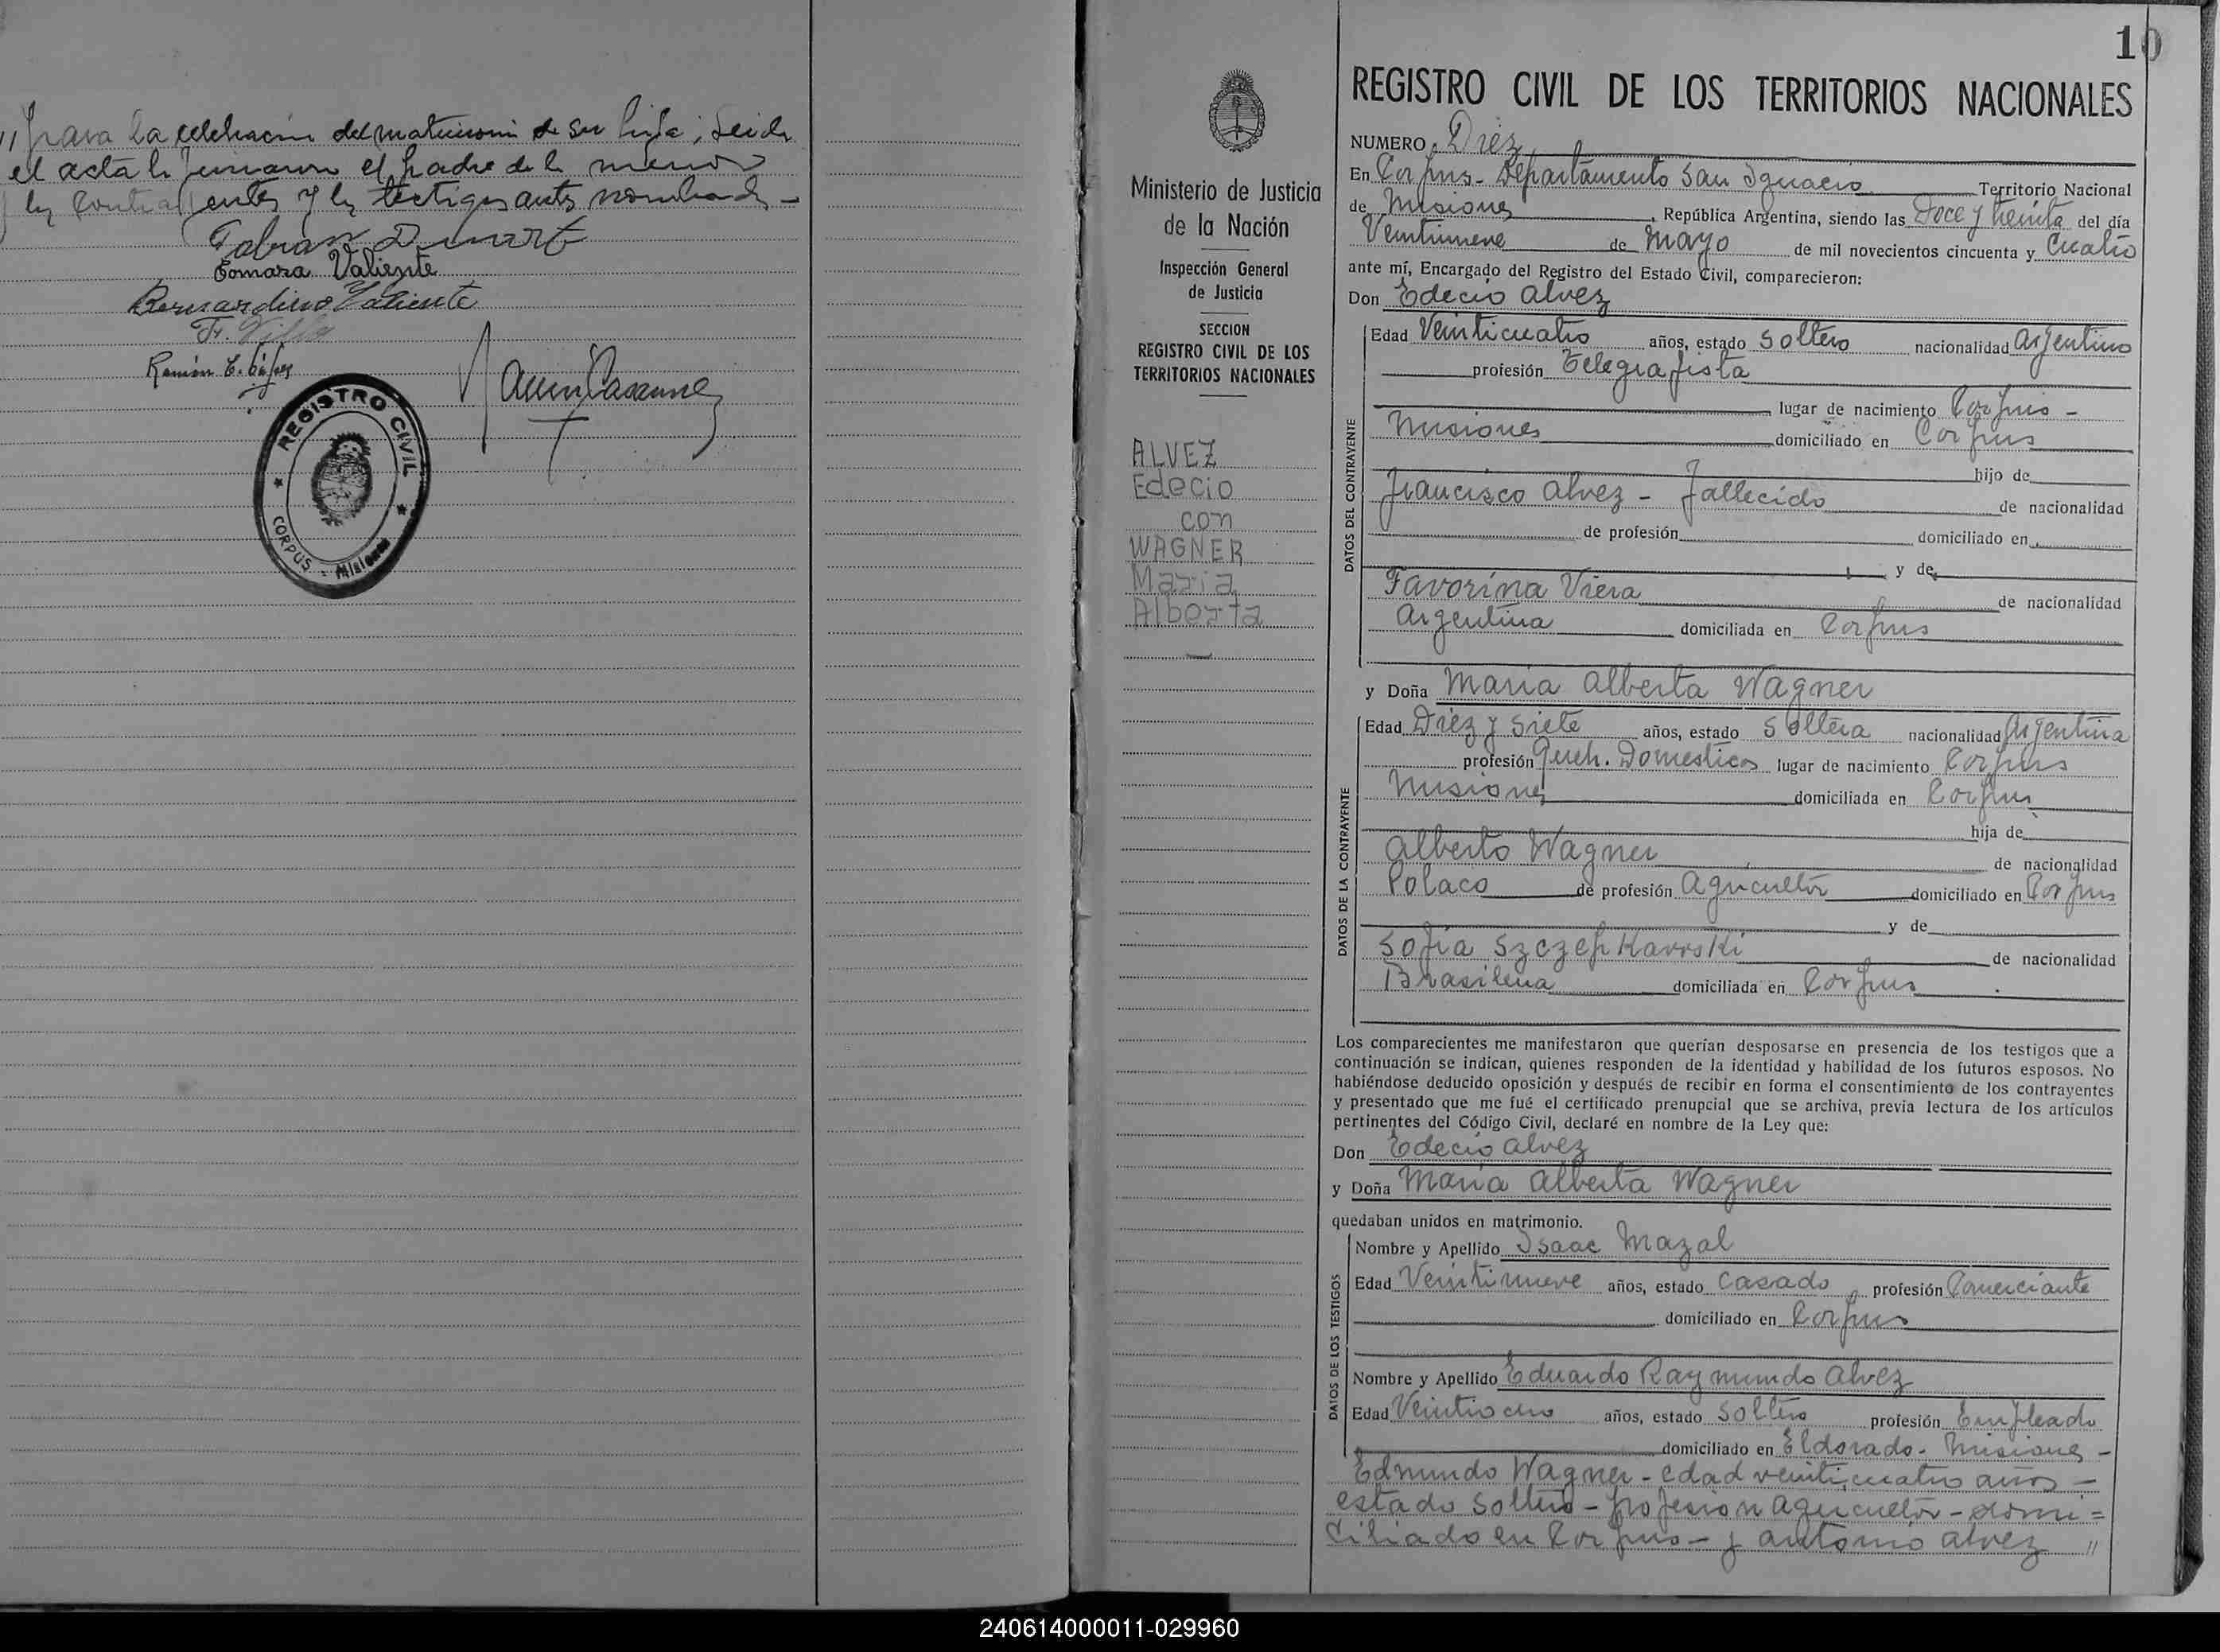 // para la celebración del matrimonio de su hija; Leida
el acta la firmaron el padre de la menor
los Contrayentes y los testigos antes nombrados -
Fabian Duarte
Tomara Valiente
Bernardino Valiente
Fr. Villa
REGISTRO CIVIL
CORPUS - Misiones
10
REGISTRO CIVIL DE LOS TERRITORIOS NACIONALES
Ministerio de Justicia
de la Nación
Inspección General
de Justicia
SECCION
REGISTRO CIVIL DE LOS
TERRITORIOS NACIONALES
ALVEZ
Edecio
con
WAGNER
Maria
Alberta
NUMERO Diez
En Corpus - Departamento San Ignacio Territorio Nacional
de Misiones, República Argentina, siendo las Doce y treinta del día
Veintinueve de Mayo de mil novecientos cincuenta y Cuatro
ante mí, Encargado del Registro del Estado Civil, comparecieron:
Don Edecio Alvez
DATOS DEL CONTRAYENTE
Edad Veinticuatro años, estado Soltero nacionalidad Argentino
profesión Telegrafista
lugar de nacimiento Corpus -
Misiones domiciliado en Corpus
hijo de
Francisco Alvez - Fallecido de nacionalidad
de profesión domiciliado en
y de
Favorina Viera de nacionalidad
Argentina domiciliada en Corpus
y Doña Maria Alberta Wagner
DATOS DE LA CONTRAYENTE
Edad Diez y Siete años, estado Soltera nacionalidad Argentina
profesión Queh. Domesticos lugar de nacimiento Corpus
Misiones domiciliada en Corpus
hija de
Alberto Wagner de nacionalidad
Polaco de profesión Agricultor domiciliado en Corpus
y de
Sofia Szczepkavrski de nacionalidad
Brasilena domiciliada en Corpus
Los comparecientes me manifestaron que querían desposarse en presencia de los testigos que a
continuación se indican, quienes responden de la identidad y habilidad de los futuros esposos. No
habiéndose deducido oposición y después de recibir en forma el consentimiento de los contrayentes
y presentado que me fué el certificado prenupcial que se archiva, previa lectura de los artículos
pertinentes del Código Civil, declaré en nombre de la Ley que:
Don Edecio Alvez
y Doña Maria Alberta Wagner
quedaban unidos en matrimonio.
DATOS DE LOS TESTIGOS
Nombre y Apellido Isaac Mazal
Edad Veintinueve años, estado Casado profesión Comerciante
domiciliado en Corpus
Nombre y Apellido Eduardo Raymundo Alvez
Edad Veintiocho años, estado Soltero profesión Empleado
domiciliado en Eldorado - Misiones -
Edmundo Wagner - edad veinticuatro años -
estado Soltero - profesion agricultor - domi=
ciliado en Corpus - y Antonio Alvez //
240614000011-029960